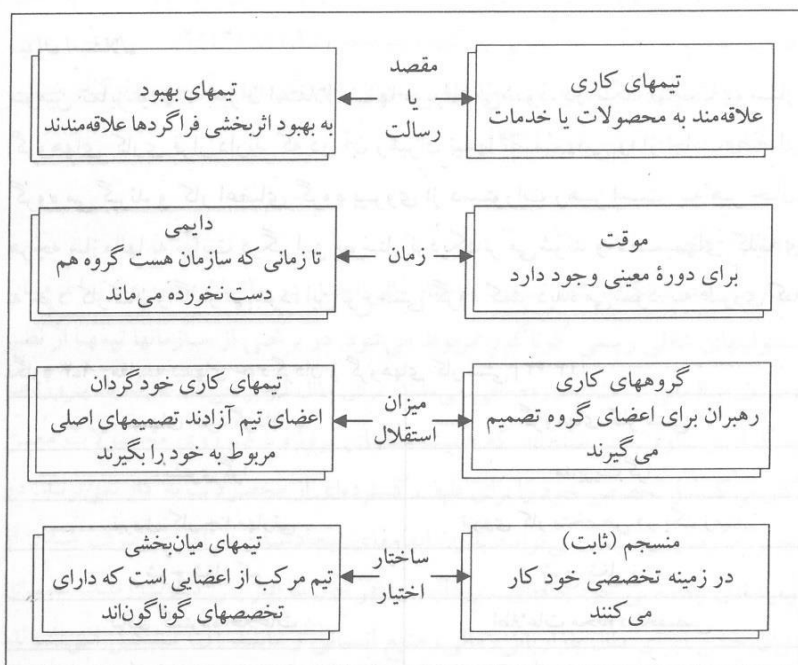 تیمهای کاری
علاقه‌مند به محصولات یا خدمات
مقصد
یا
رسالت
تیمهای بهبود
به بهبود اثربخشی فراگردها علاقه‌مندند
موقت
برای دورهٔ معینی وجود دارد
زمان
دایمی
تا زمانی که سازمان هست گروه هم
دست نخورده می‌ماند
گروههای کاری
رهبران برای اعضای گروه تصمیم
می‌گیرند
میزان
استقلال
تیمهای کاری خودگردان
اعضای تیم آزادند تصمیمهای اصلی
مربوط به خود را بگیرند
منسجم (ثابت)
در زمینه تخصصی خود کار
می‌کنند
ساختار
اختیار
تیمهای میان‌بخشی
تیم مرکب از اعضایی است که دارای
تخصصهای گوناگون‌اند